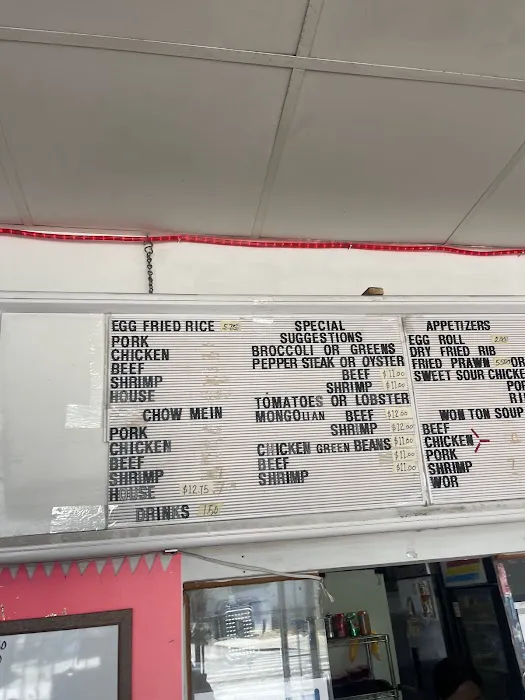 EGG FRIED RICE 5.75
PORK
CHICKEN
BEEF
SHRIMP
HOUSE
CHOW MEIN
PORK
CHICKEN
BEEF
SHRIMP
HOUSE $12.75
DRINKS 1.50
SPECIAL
SUGGESTIONS
BROCCOLI OR GREENS
PEPPER STEAK OR OYSTER
BEEF $11.00
SHRIMP $11.00
TOMATOES OR LOBSTER
MONGOLIAN BEEF $12.00
SHRIMP $12.00
CHICKEN GREEN BEANS $11.00
BEEF $11.00
SHRIMP $11.00
APPETIZERS
EGG ROLL 2.00
DRY FRIED RIB
FRIED PRAWN OR
SWEET SOUR CHICKE
POR
RI
WON TON SOUP
BEEF
CHICKEN
PORK
SHRIMP
WOR